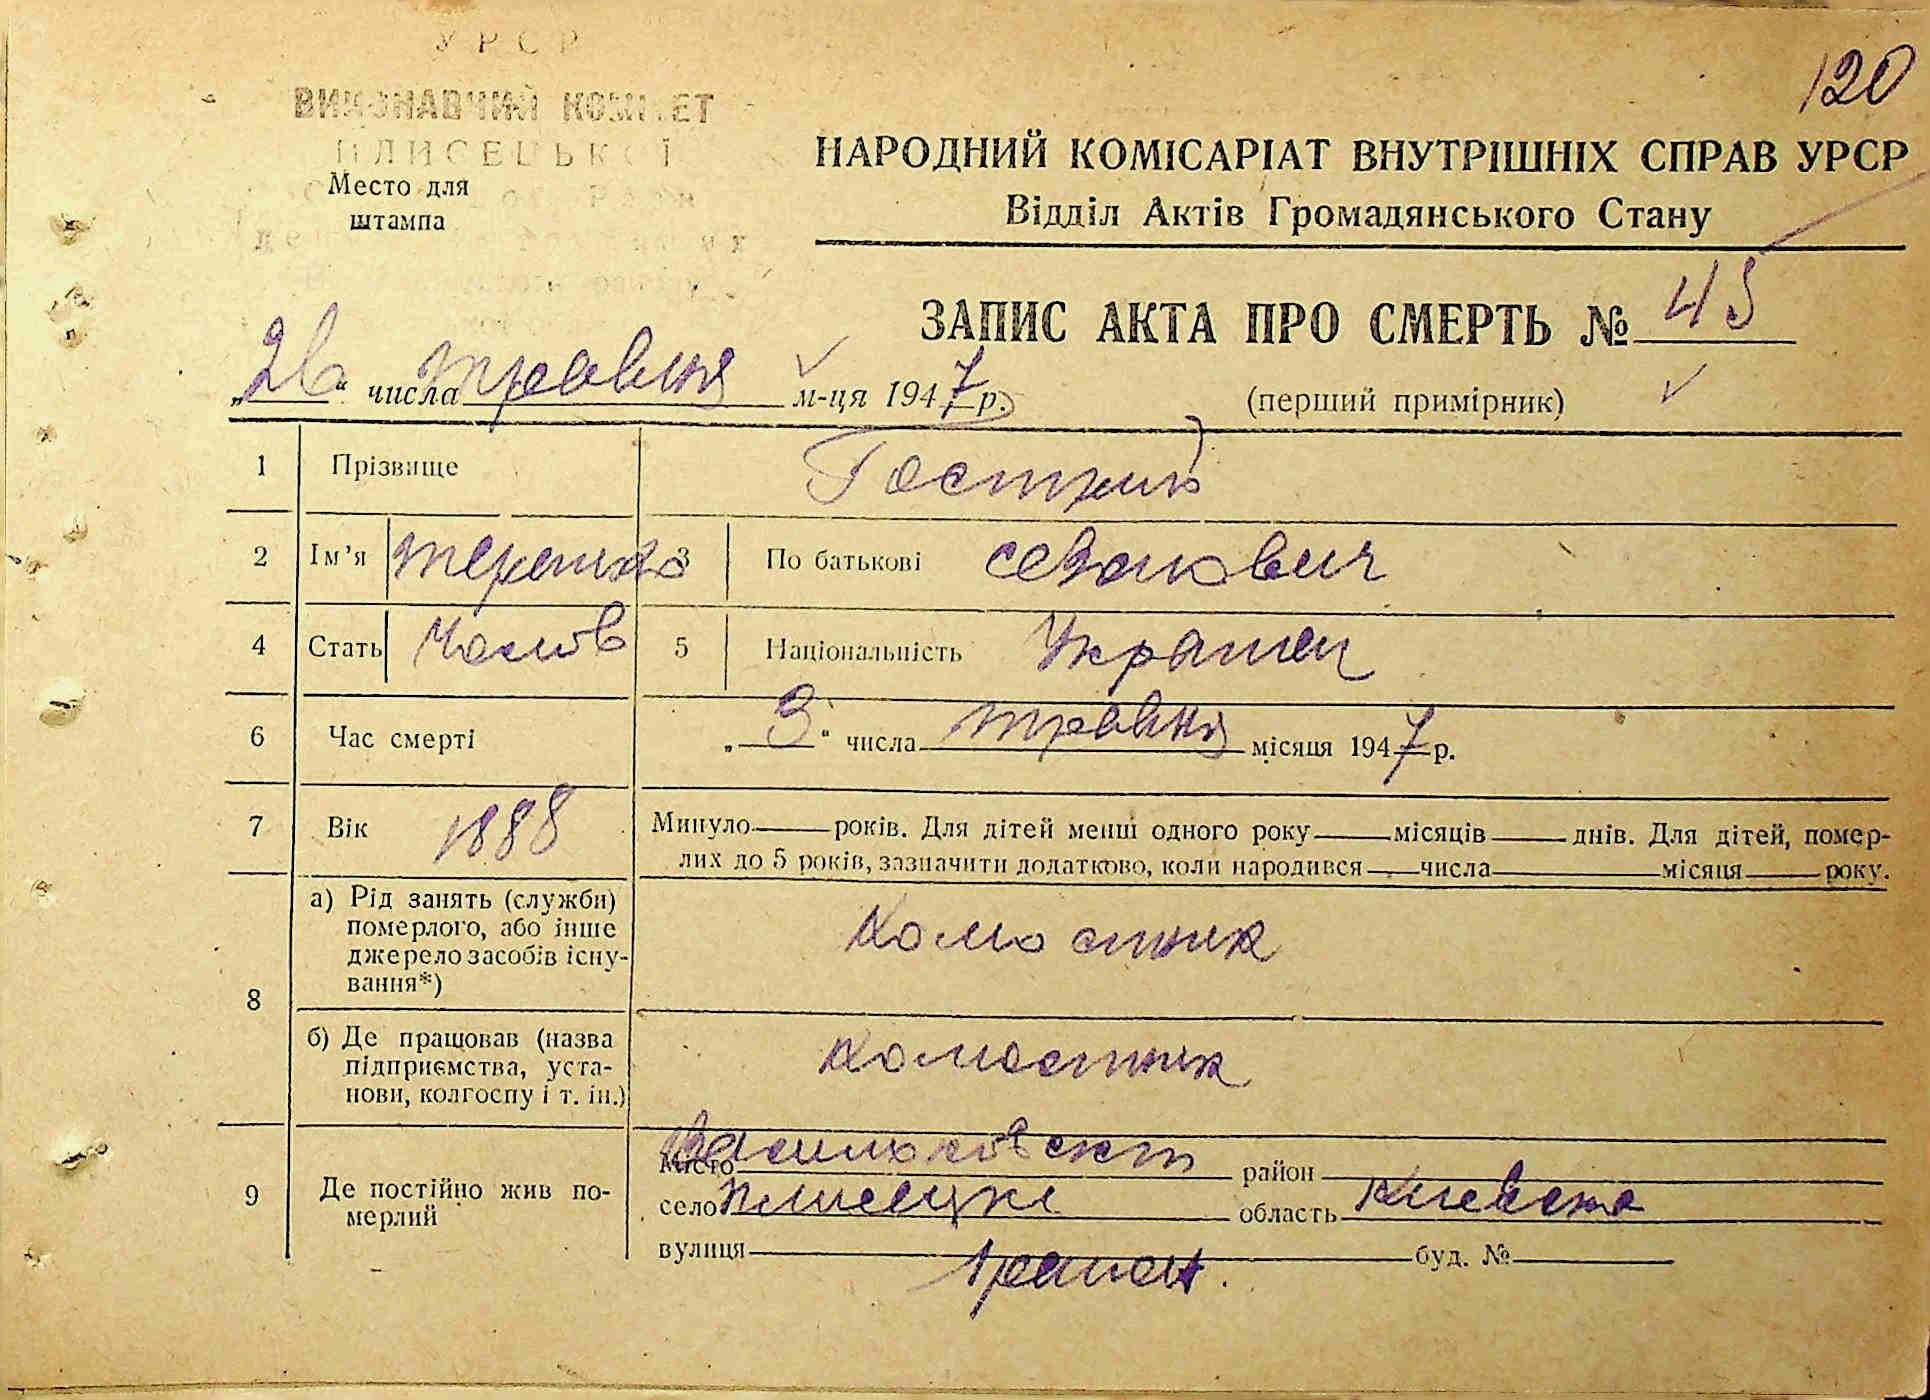 УРСР
120
ВИКОНАВЧИЙ КОМІТЕТ
ПЛИСЕЦЬКОЇ
Место для
штампа
НАРОДНИЙ КОМІСАРІАТ ВНУТРІШНІХ СПРАВ УРСР
Відділ Актів Громадянського Стану
ЗАПИС АКТА ПРО СМЕРТЬ № 45
„26“ числа травня м-ця 1947 р.
(перший примірник)
1 Прізвище Гострий
2 Ім’я 3 По батькові
4 Стать Чолов 5 Національність Украінец
6 Час смерті „3“ числа травня місяця 1947 р.
7 Вік 1888 Минуло років. Для дітей менш одного року місяців днів. Для дітей, помер-
лих до 5 років, зазначити додатково, коли народився числа місяця року.
8 а) Рід занять (служби)
померлого, або інше
джерело засобів існу-
вання*)
б) Де працював (назва
підприємства, уста-
нови, колгоспу і т. ін.)
9 Де постійно жив по-
мерлий
місто район
село Плисецке область Киевска
вулиця буд. №